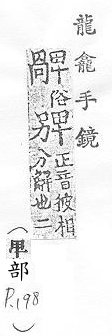 龍龕手鏡
俗
正音彼相
分解也二
(甲部
P.198)